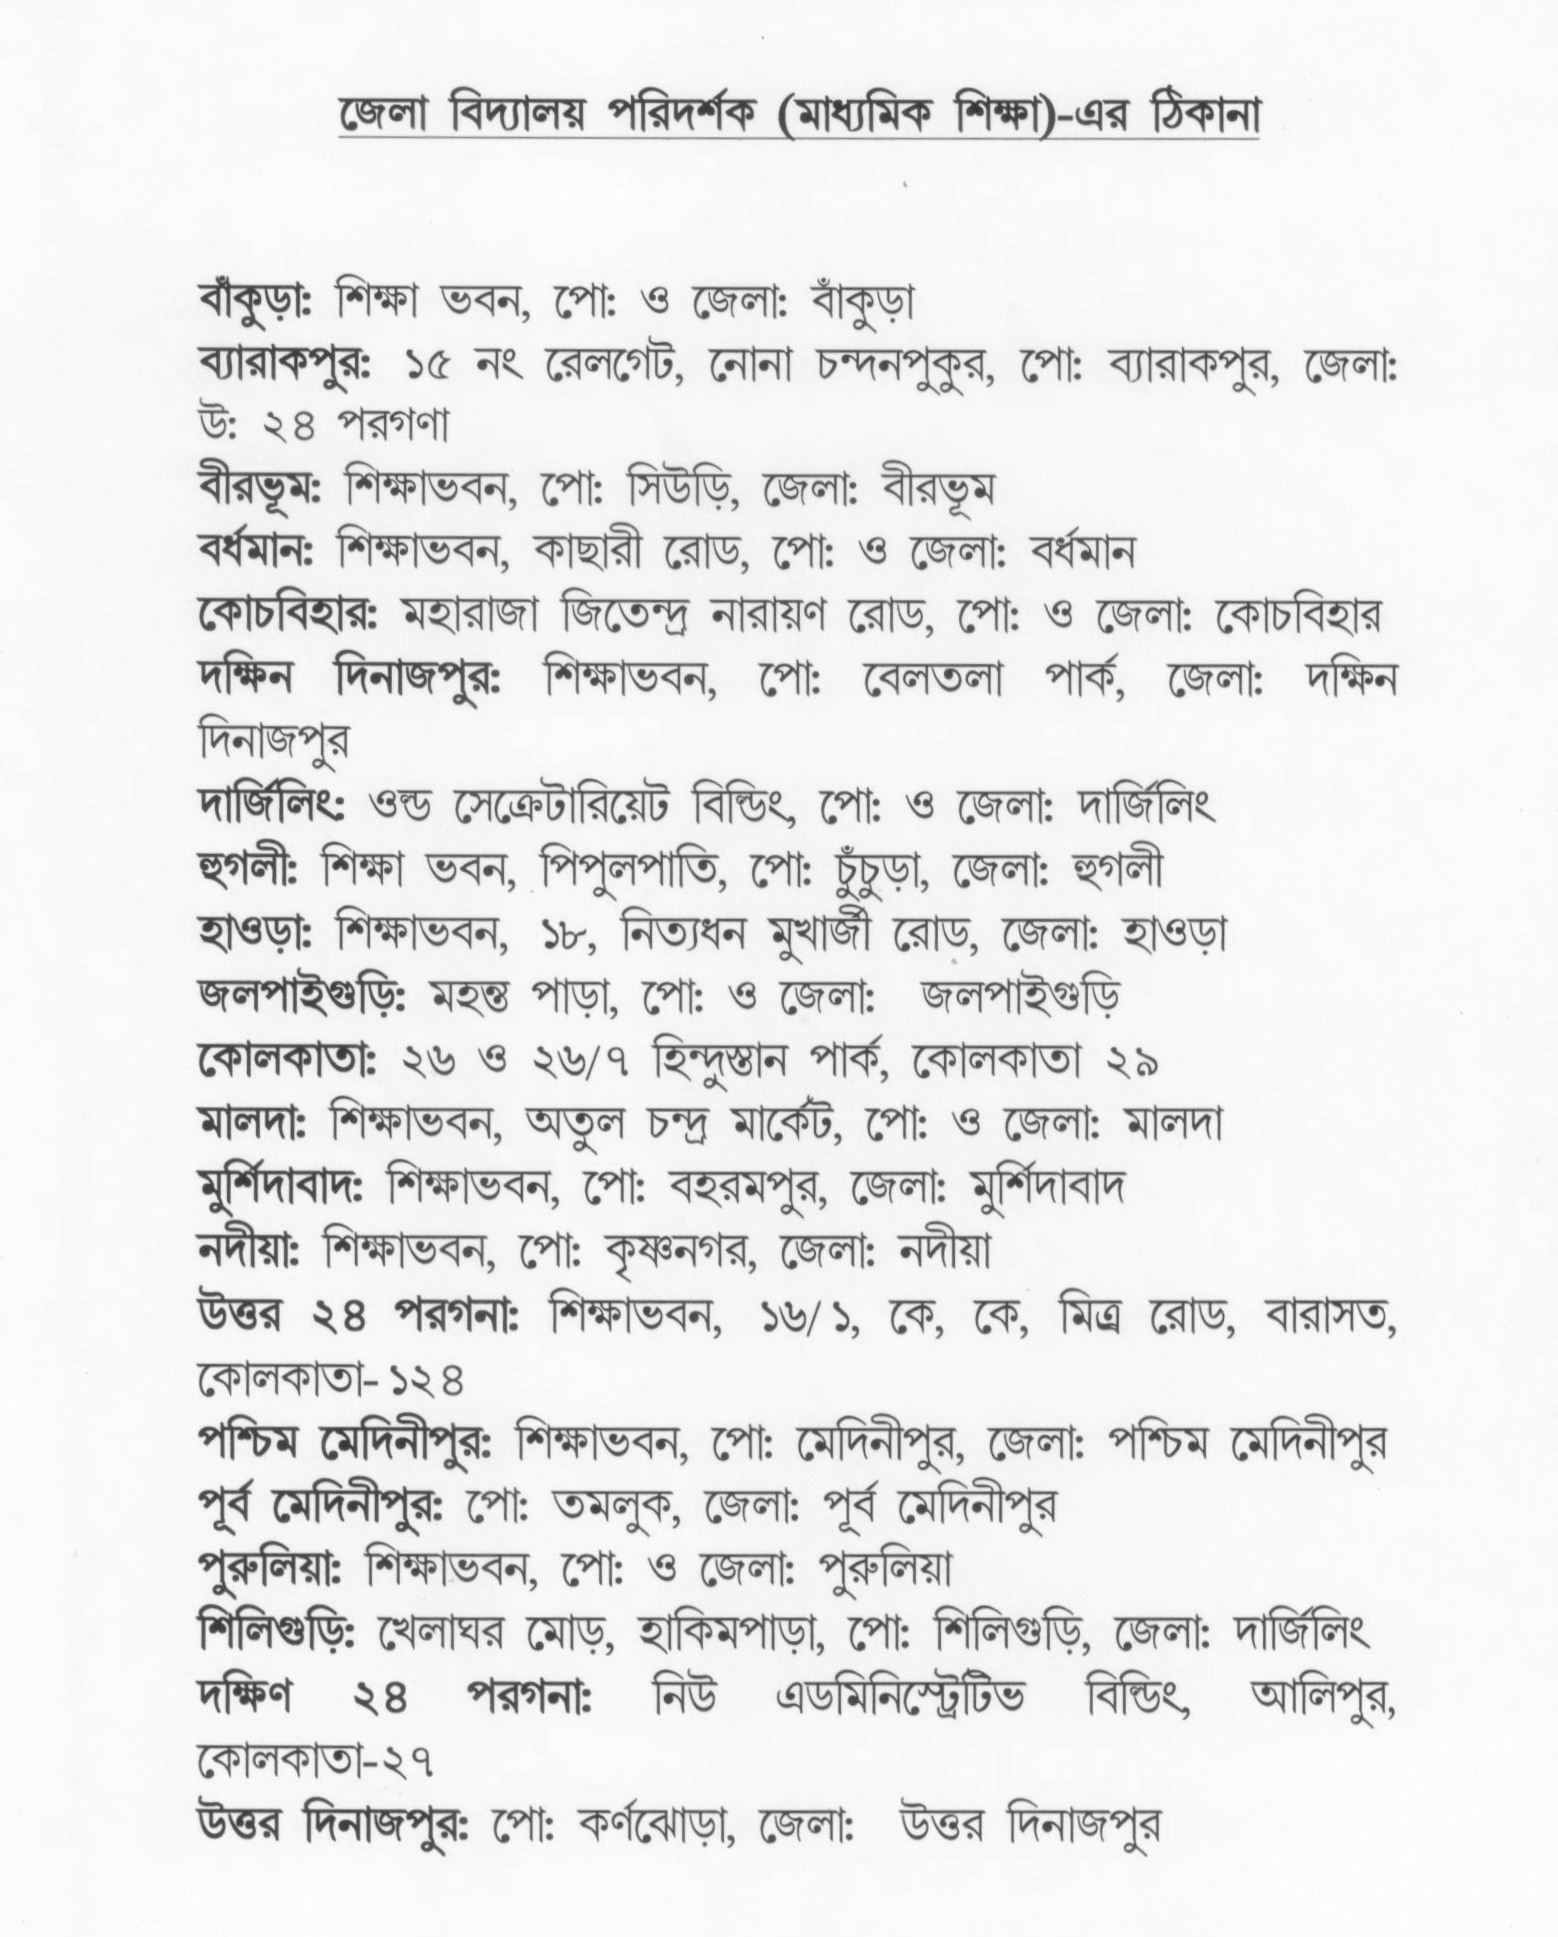 জেলা বিদ্যালয় পরিদর্শক (মাধ্যমিক শিক্ষা)-এর ঠিকানা
বাঁকুড়া: শিক্ষা ভবন, পো: ও জেলা: বাঁকুড়া
ব্যারাকপুর: ১৫ নং রেলগেট, নোনা চন্দনপুকুর, পো: ব্যারাকপুর, জেলা:
উ: ২৪ পরগণা
বীরভূম: শিক্ষাভবন, পো: সিউড়ি, জেলা: বীরভূম
বর্ধমান: শিক্ষাভবন, কাছারী রোড, পো: ও জেলা: বর্ধমান
কোচবিহার: মহারাজা জিতেন্দ্র নারায়ণ রোড, পো: ও জেলা: কোচবিহার
দক্ষিন দিনাজপুর: শিক্ষাভবন, পো: বেলতলা পার্ক, জেলা: দক্ষিন
দিনাজপুর
দার্জিলিং: ওল্ড সেক্রেটারিয়েট বিল্ডিং, পো: ও জেলা: দার্জিলিং
হুগলী: শিক্ষা ভবন, পিপুলপাতি, পো: চুঁচুড়া, জেলা: হুগলী
হাওড়া: শিক্ষাভবন, ১৮, নিত্যধন মুখার্জী রোড, জেলা: হাওড়া
জলপাইগুড়ি: মহন্ত পাড়া, পো: ও জেলা: জলপাইগুড়ি
কোলকাতা: ২৬ ও ২৬/৭ হিন্দুস্তান পার্ক, কোলকাতা ২৯
মালদা: শিক্ষাভবন, অতুল চন্দ্র মার্কেট, পো: ও জেলা: মালদা
মুর্শিদাবাদ: শিক্ষাভবন, পো: বহরমপুর, জেলা: মুর্শিদাবাদ
নদীয়া: শিক্ষাভবন, পো: কৃষ্ণনগর, জেলা: নদীয়া
উত্তর ২৪ পরগনা: শিক্ষাভবন, ১৬/১, কে, কে, মিত্র রোড, বারাসত,
কোলকাতা-১২৪
পশ্চিম মেদিনীপুর: শিক্ষাভবন, পো: মেদিনীপুর, জেলা: পশ্চিম মেদিনীপুর
পূর্ব মেদিনীপুর: পো: তমলুক, জেলা: পূর্ব মেদিনীপুর
পুরুলিয়া: শিক্ষাভবন, পো: ও জেলা: পুরুলিয়া
শিলিগুড়ি: খেলাঘর মোড়, হাকিমপাড়া, পো: শিলিগুড়ি, জেলা: দার্জিলিং
দক্ষিণ ২৪ পরগনা: নিউ এডমিনিস্ট্রেটিভ বিল্ডিং, আলিপুর,
কোলকাতা-২৭
উত্তর দিনাজপুর: পো: কর্ণঝোড়া, জেলা: উত্তর দিনাজপুর